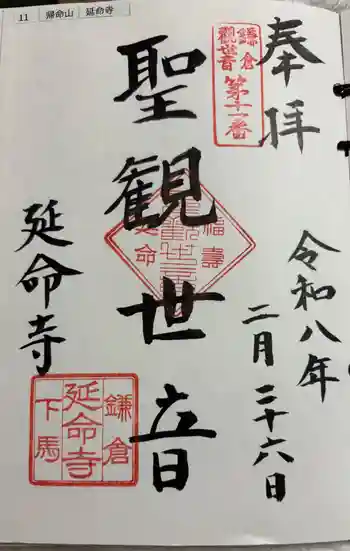 11 帰命山 延命寺
奉拝
鎌倉
観世音
第十一番
令和八年
二月二十六日
聖観世音
福壽
延命
延命寺
鎌倉
延命寺
下馬